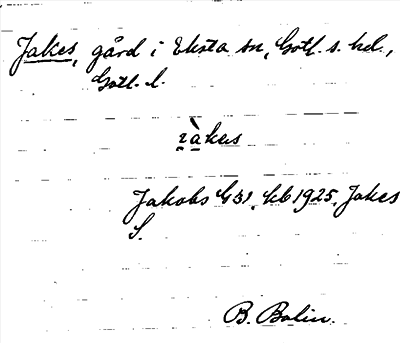 Jakes, gård i Eksta sn, Gotl. s. hd.,
Gotl. l.
Jakobs G31, kb 1925, Jakes
S.
B. Bolin.